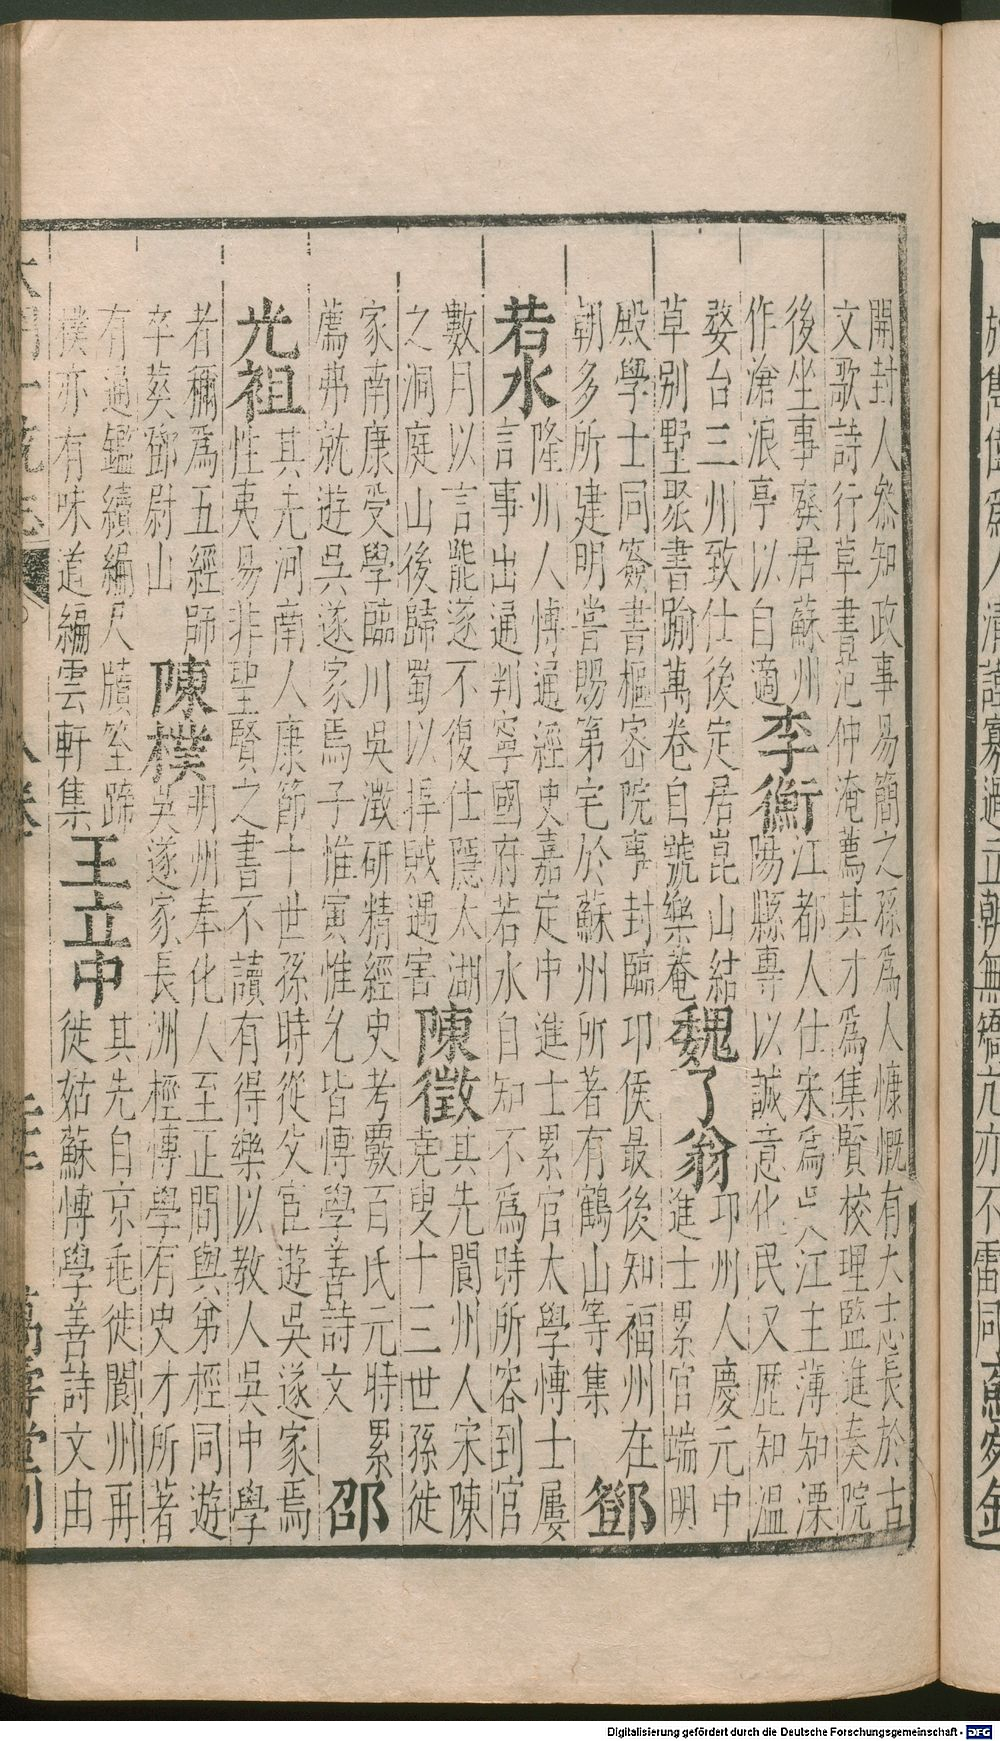 開封人叅知政事易簡之孫爲人慷慨有大志長於古
文歌詩行草書范仲淹薦其才爲集賢校理監進奏院
後坐事廢居蘇州
作滄浪亭以自適
李衡
江都人仕宋爲吳江主薄知溧
陽縣專以誠意化民又歴知溫
婺台三州致仕後定居崑山結
草别墅聚書踰萬卷自號樂菴
魏了翁
卭州人慶元中
進士累官端明
殿學士同簽書樞宻院事封臨卭侯最後知福州在
朝多所建明嘗賜第宅於蘇州所著有鶴山等集
鄧
若水
隆州人博通經史嘉定中進士累官太學博士屢
言事出通判寧國府若水自知不爲時所容到官
數月以言罷遂不復仕隱太湖
之洞庭山後歸蜀以捍賊遇害
陳徵
其先閬州人宋陳
堯叟十三世孫徙
家南康受學臨川吳澂研精經史考覈百氏元時累
薦弗就遊吳遂家焉子惟寅惟允皆博學善詩文
邵
光祖
其先河南人康節十世孫時從父宦遊吳遂家焉
性夷易非聖賢之書不讀有得樂以教人吳中學
者稱爲五經師
卒葬鄧尉山
陳檏
明州奉化人至正間與弟桱同遊
吳遂家長洲桱博學有史才所著
有通鑑續編尺牘筌蹄
檏亦有味道編雲軒集
王立中
其先自京乖徙閬州再
徙姑蘇博學善詩文由
大明一統志 八卷 萬壽堂刊
無矯亢亦不雷同